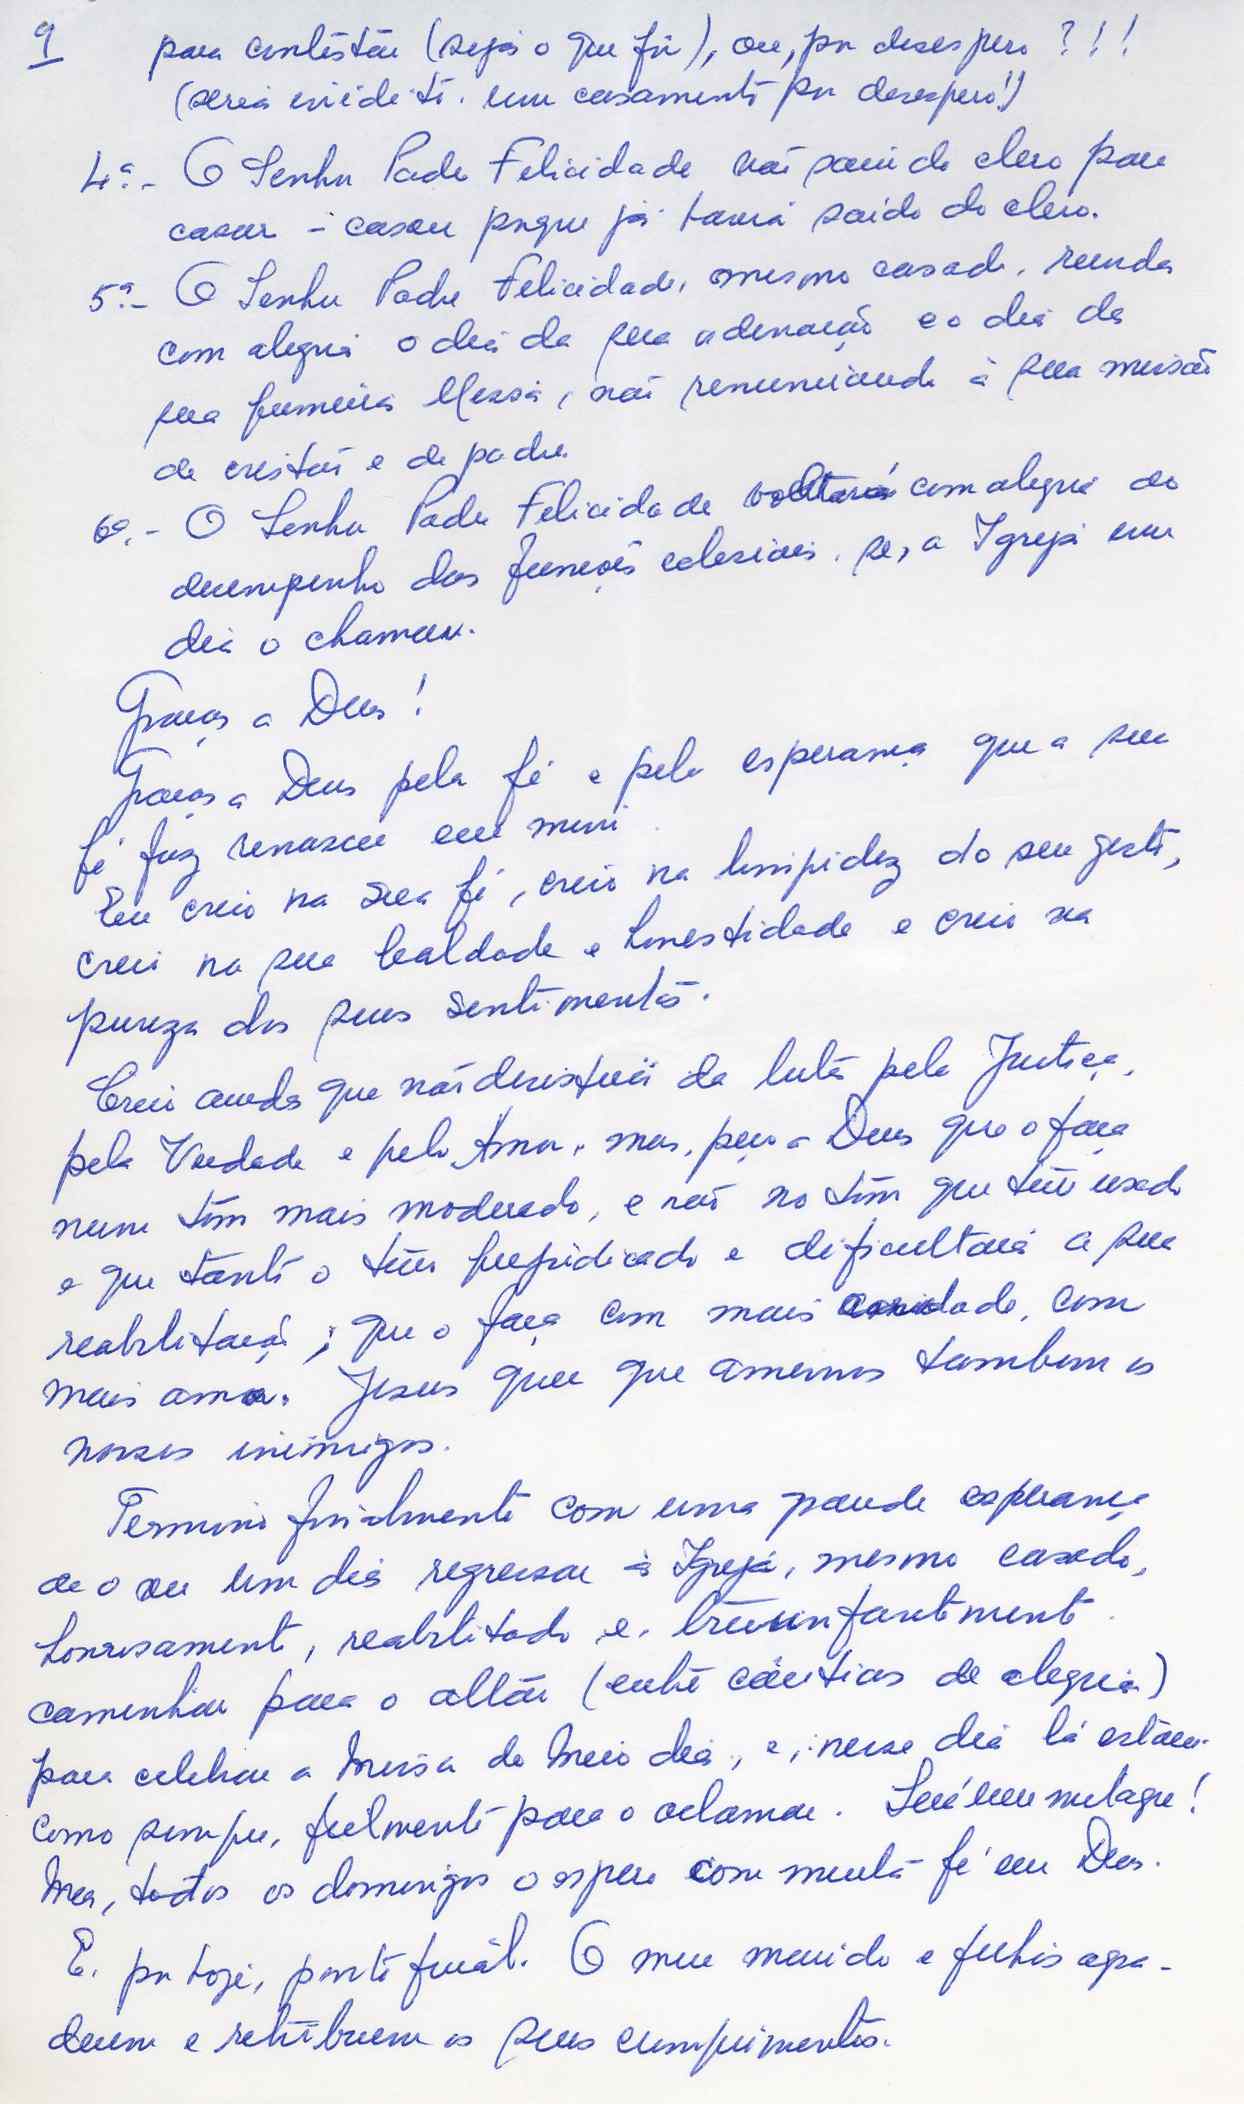 9
para contestar (seja o que fôr), ou, por desespero ?!!
(seria inédito. um casamento por desespero!)
4ª.- O Senhor Padre Felicidade não saiu do clero para
casar - casou porque já havia saído do clero.
5ª.- O Senhor Padre Felicidade, mesmo casado, recorda
com alegria o dia da sua ordenação e o dia da
sua primeira Missa, não renunciando à sua missão
de cristão e de padre.
6ª.- O Senhor Padre Felicidade voltará com alegria ao
desempenho das funções eclesiais, se, a Igreja um
dia o chamar.
Graças a Deus!
Graças a Deus pela fé e pela esperança que a sua
fé faz renascer em mim.
Eu creio na sua fé, creio na limpidez do seu gesto,
creio na sua lealdade e honestidade e creio na
pureza dos seus sentimentos.
Creio ainda que não desistirá da luta pela Justiça,
pela Verdade e pelo Amor, mas, peço a Deus que o faça
num tom mais moderado, e não no tom que tem usado
e que tanto o tem prejudicado e dificultará a sua
reabilitação; que o faça com mais caridade, com
mais amor. Jesus quer que amemos tambem os
nossos inimigos.
Termino finalmente com uma grande esperança
de o ver um dia regressar à Igreja, mesmo casado,
honrosamente, reabilitado e, triunfantemente
caminhar para o altar (entre cânticos de alegria)
para celebrar a Missa do Meio dia, e, nesse dia lá estarei
como sempre, fielmente para o aclamar. Será um milagre!
Mas, todos os domingos o espero com muita fé em Deus.
E, por hoje, ponto final. O meu marido e filhos agra-
decem e retribuem os seus cumprimentos.